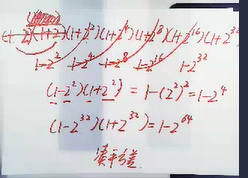 (1-2)(1+2)(1+2²)(1+2⁴)(1+2⁸)(1+2¹⁶)(1+2³²)
1-2² 1-2⁴ 1-2⁸ 1-2¹⁶ 1-2³²
(1-2²)(1+2²) = 1-(2²)² = 1-2⁴
(1-2³²)(1+2³²) = 1-2⁶⁴
平方差